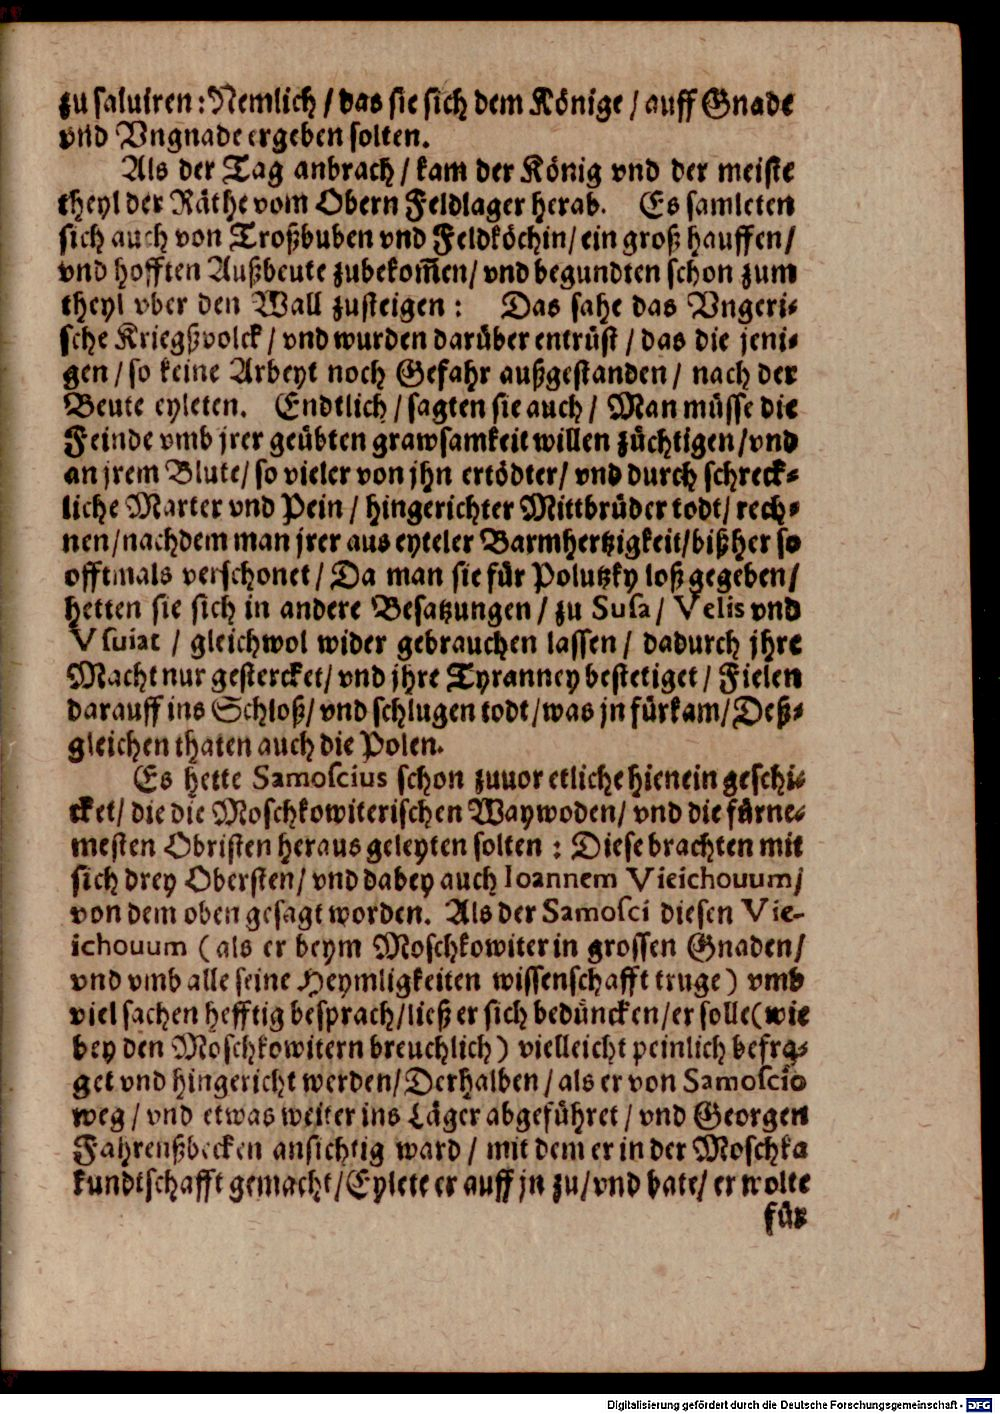 zu saluiren: Nemlich / das sie sich dem Könige / auff Gnade
vnd Vngnade ergeben solten.
Als der Tag anbrach / kam der König vnd der meiste
theyl der Räthe vom Obern Feldlager herab. Es samleten
sich auch von Troßbuben vnd Feldköchin / ein groß hauffen /
vnd hofften Außbeute zubekom̃en / vnd begundten schon zum
theyl vber den Wall zusteigen: Das sahe das Vngeri-
sche Kriegßvolck / vnd wurden darüber entrüst / das die jeni-
gen / so keine Arbeyt noch Gefahr außgestanden / nach der
Beute eyleten. Endtlich / sagten sie auch / Man müsse die
Feinde vmb jrer geübten grawsamkeit willen züchtigen / vnd
an jrem Blute / so vieler von jhn ertödter / vnd durch schreck-
liche Marter vnd Pein / hingerichter Mittbrüder todt / rech-
nen / nachdem man jrer aus eyteler Barmhertzigkeit / bißher so
offtmals verschonet / Da man sie für Polutzky loß gegeben /
hetten sie sich in andere Besatzungen / zu Susa / Velis vnd
Vsuiat / gleichwol wider gebrauchen lassen / dadurch jhre
Macht nur gestercket / vnd jhre Tyranney bestetiget / Fielen
darauff ins Schloß / vnd schlugen todt / was jn fürkam / Deß-
gleichen thaten auch die Polen.
Es hette Samoscius schon zuuor etliche hienein geschi-
cket / die die Moschkowiterischen Waywoden / vnd die fürne-
mesten Obristen heraus geleyten solten: Diese brachten mit
sich drey Obersten / vnd dabey auch Ioannem Vieichouum /
von dem oben gesagt worden. Als der Samosci diesen Vie-
ichouum (als er beym Moschkowiter in grossen Gnaden /
vnd vmb alle seine Heymligkeiten wissenschafft truge) vmb
viel sachen hefftig besprach / ließ er sich bedüncken / er solle (wie
bey den Moschkowitern breuchlich) vielleicht peinlich befra-
get vnd hingericht werden / Derhalben / als er von Samoscio
weg / vnd etwas weiter ins Läger abgeführet / vnd Georgen
Fahrenßbecken ansichtig ward / mit dem er in der Moschka
kundtschafft gemacht / Eylete er auff jn zu / vnd bate / er wolte
für
Digitalisierung gefördert durch die Deutsche Forschungsgemeinschaft - DFG